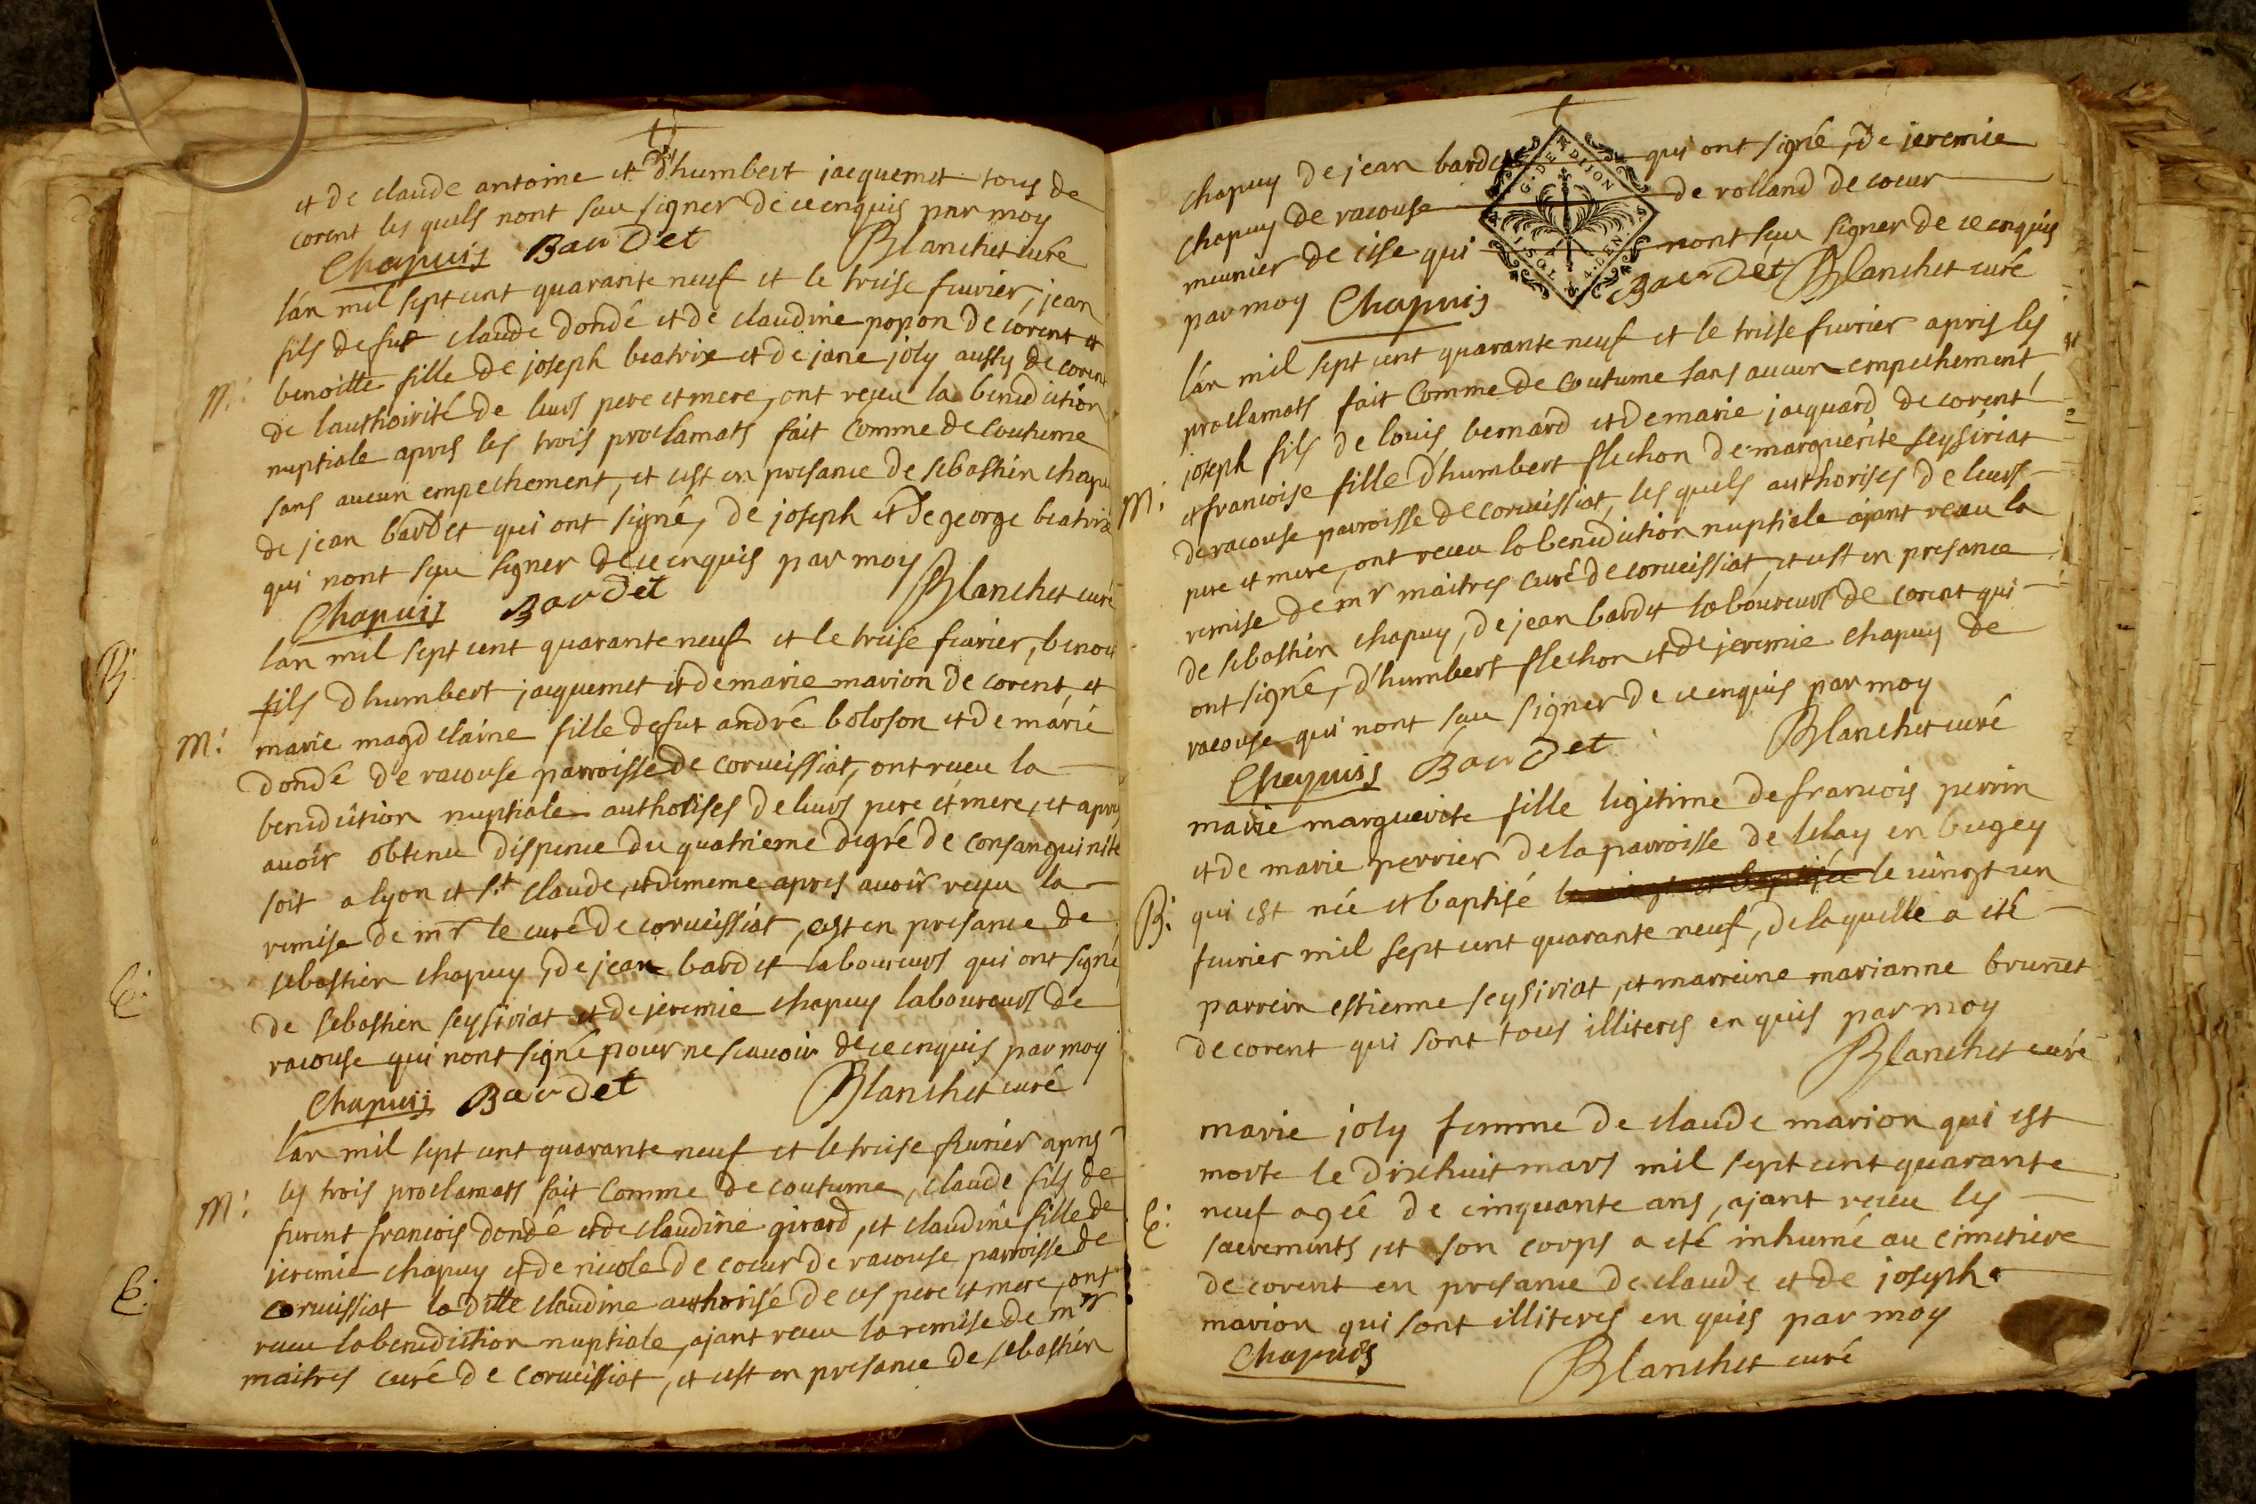 et de claude antoine et d'humbert jacquemet tous de
corent les quels nont sau signer de ce enquis par moy
Chapuis Baudet Blanchet curé
lán mil sept cent quarante neuf et le treise fevrier, jean
fils de fut claude dondé et de claudine popon de corent et
M: benoitte fille de joseph beatrix et de jane joly aussy de corent
de lauthoirité de leurs pere et mere, ont reçeu la benediction
nuptiale apres les trois proclamats fait Comme de Coutume
sans aucun empechement, et cest en presance de sebastien chapu
de jean bardet qui ont signé, de joseph et de george beatrix
qui nont sçeu signer de ce enquis par moy
Chapuis Baudet Blanchet curé
lan mil sept cent quarante neuf et le treise fevrier, benoit
fils d'humbert jacquemet et de marie marion de corent, et
M: marie magdelaine fille de fut andré boloson et de marie
dondé de racouse parroisse de corveissiat, ont receu la
benediction nuptiale authorises de leurs pere et mere, et apres
avoir obtenu dispence du quatrieme degré de consanguinité
soit a lyon et St claude, et dememe apres avoir reçeu la
remise de mr le curé de corveissiat, cest en presance de
sebastien chapuy, de jean bardet laboureurs qui ont signé
de sebastien seysiriat et de jeremie chapuy laboureurs de
racouse qui nont signé pour ne sçavoir de ce enquis par moy
Chapuis Baudet Blanchet curé
lán mil sept cent quarante neuf et le treise fevrier apres
M: les trois proclamats fait Comme de coutume, claude fils de
furent francois dondé et de claudine girard, et claudine fille de
jeremie chapuy et de nicole de coeur de racouse parroisse de
corveissiat la ditte claudine authorisé de ces pere et mere, ont
receu la benediction nuptiale, ajant receu la remise de mr
maitres curé de Corveissiat, et cest en presance de sebastien
B:
E:
E:
chapuy de jean bardet qui ont signé, de jeremie
chapuy de racouse de rolland de coeur
meunier de cise qui nont sçeu signer de ce enquis
par moy Chapuis Baudet Blanchet curé
G. DE DIJON
4. DEN
lán mil sept cent quarante neuf et le treise fevrier apres les
proclamats fait Comme de coutume sans aucun empechement
joseph fils de louis bernard et de marie jacquard de corent
M: et francoise fille d'humbert flechon de marguerite seysiriat
de racouse parroisse de corveissiat, les quels authorises de leurs
pere et mere, ont receu la benediction nuptiale ajant receu la
remise de mr maitres curé de corveissiat, et cest en presance
de sebastien chapuy, de jean bardet laboureurs de corent qui
ont signé, d'humbert flechon et de jeremie chapuy de
racouse qui nont sau signer de ce enquis par moy
Chapuis Baudet Blanchet curé
marie marguerite fille legitime de francois perrin
et de marie perrier de la parroisse de lelay en bugey
B: qui est née et baptisé le vingt un
fevrier mil sept cent quarante neuf, de laquelle a eté
parrein estienne seysiriat, et marreine marianne brunet
de corent qui sont tous illiteres enquis par moy
Blanchet curé
marie joly femme de claude marion qui est
morte le dixhuit mars mil sept cent quarante
E: neuf agée de cinquante ans, ajant receu les
sacrements, et son corps a eté inhumé au cimetiere
de corent en presance de claude et de joseph
marion qui sont illiteres enquis par moy
Chapuis Blanchet curé